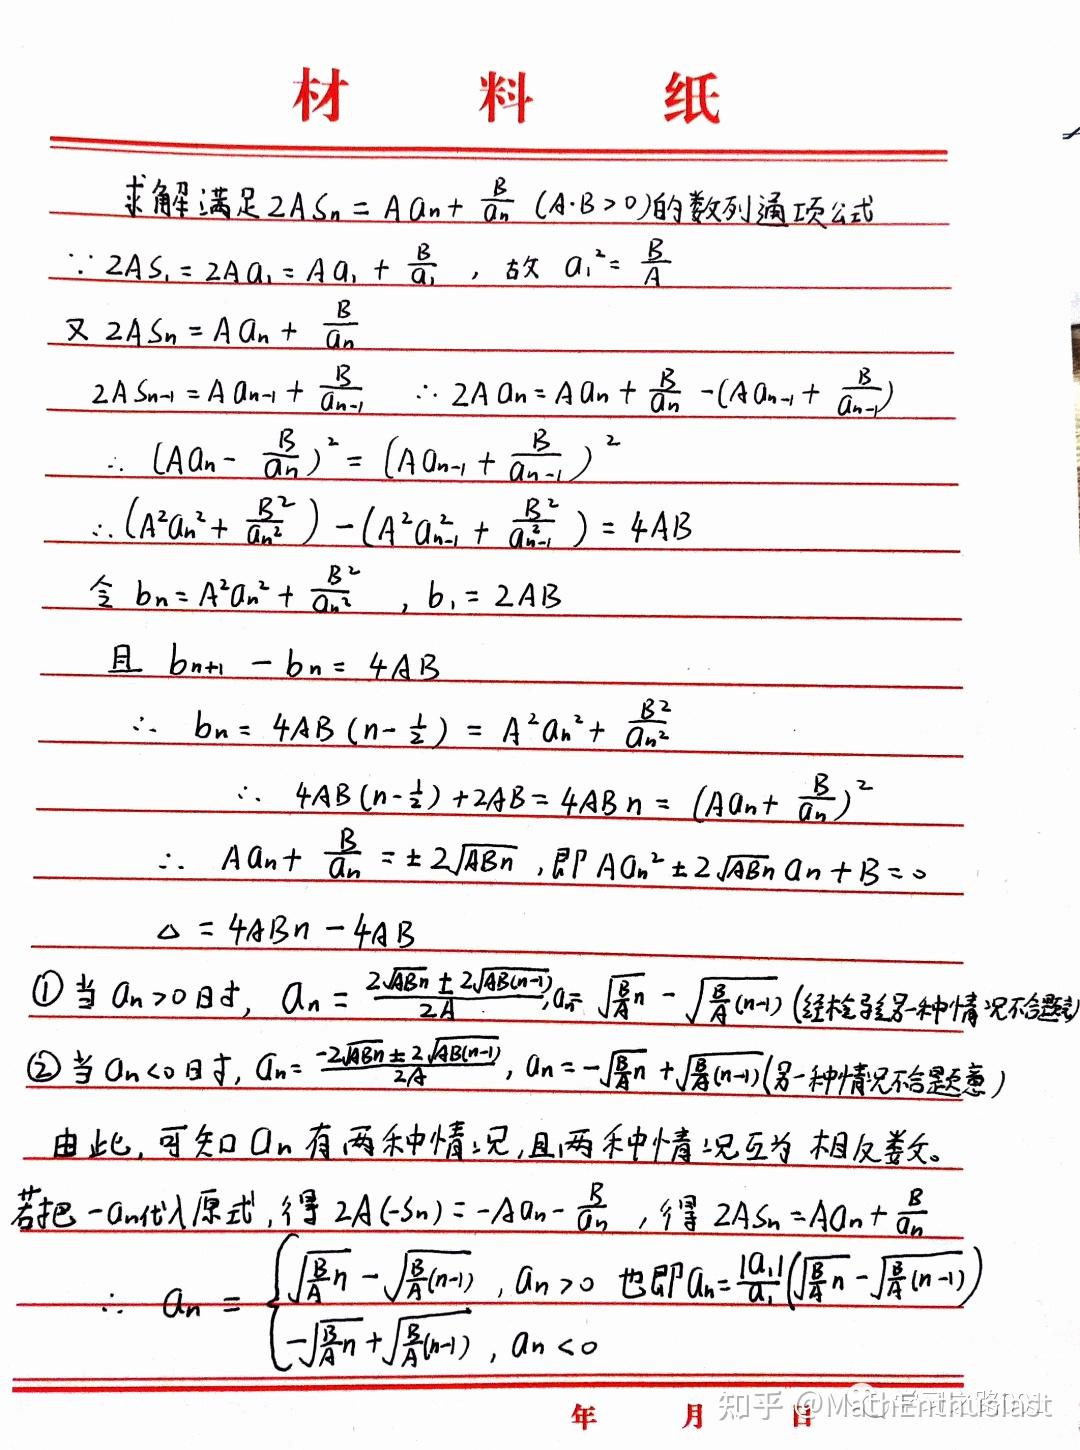 材 料 纸
求解满足2ASn = Aan + B/an (A·B>0)的数列通项公式
∵ 2AS₁ = 2Aa₁ = Aa₁ + B/a₁ , 故 a₁² = B/A
又 2ASn = Aan + B/an
2ASn-1 = Aan-1 + B/an-1 ∴ 2Aan = Aan + B/an -(Aan-1 + B/an-1)
∴ (Aan - B/an)² = (Aan-1 + B/an-1)²
∴ (A²an² + B²/an²) - (A²an-1² + B²/an-1²) = 4AB
令 bn = A²an² + B²/an² , b₁ = 2AB
且 bn+1 - bn = 4AB
∴ bn = 4AB(n-1/2) = A²an² + B²/an²
∴ 4AB(n-1/2)+2AB = 4ABn = (Aan + B/an)²
∴ Aan + B/an = ±2√ABn , 即 Aan² ± 2√ABn an + B = 0
△ = 4ABn - 4AB
① 当 an>0时, an = (2√ABn ± 2√AB(n-1))/2A , an = √(B/A n) - √(B/A (n-1)) (经检验另一种情况不合题意)
② 当 an<0时, an = (-2√ABn ± 2√AB(n-1))/2A , an = -√(B/A n) + √(B/A (n-1)) (另一种情况不合题意)
由此, 可知 an 有两种情况, 且两种情况互为相反数。
若把 -an代入原式, 得 2A(-Sn) = -Aan - B/an , 得 2ASn = Aan + B/an
∴ an = { √(B/A n) - √(B/A (n-1)) , an>0 也即 an = |a₁|/a₁ (√(B/A n) - √(B/A (n-1)))
-√(B/A n) + √(B/A (n-1)) , an<0
年 月 日
知乎 @MathEnthusiast